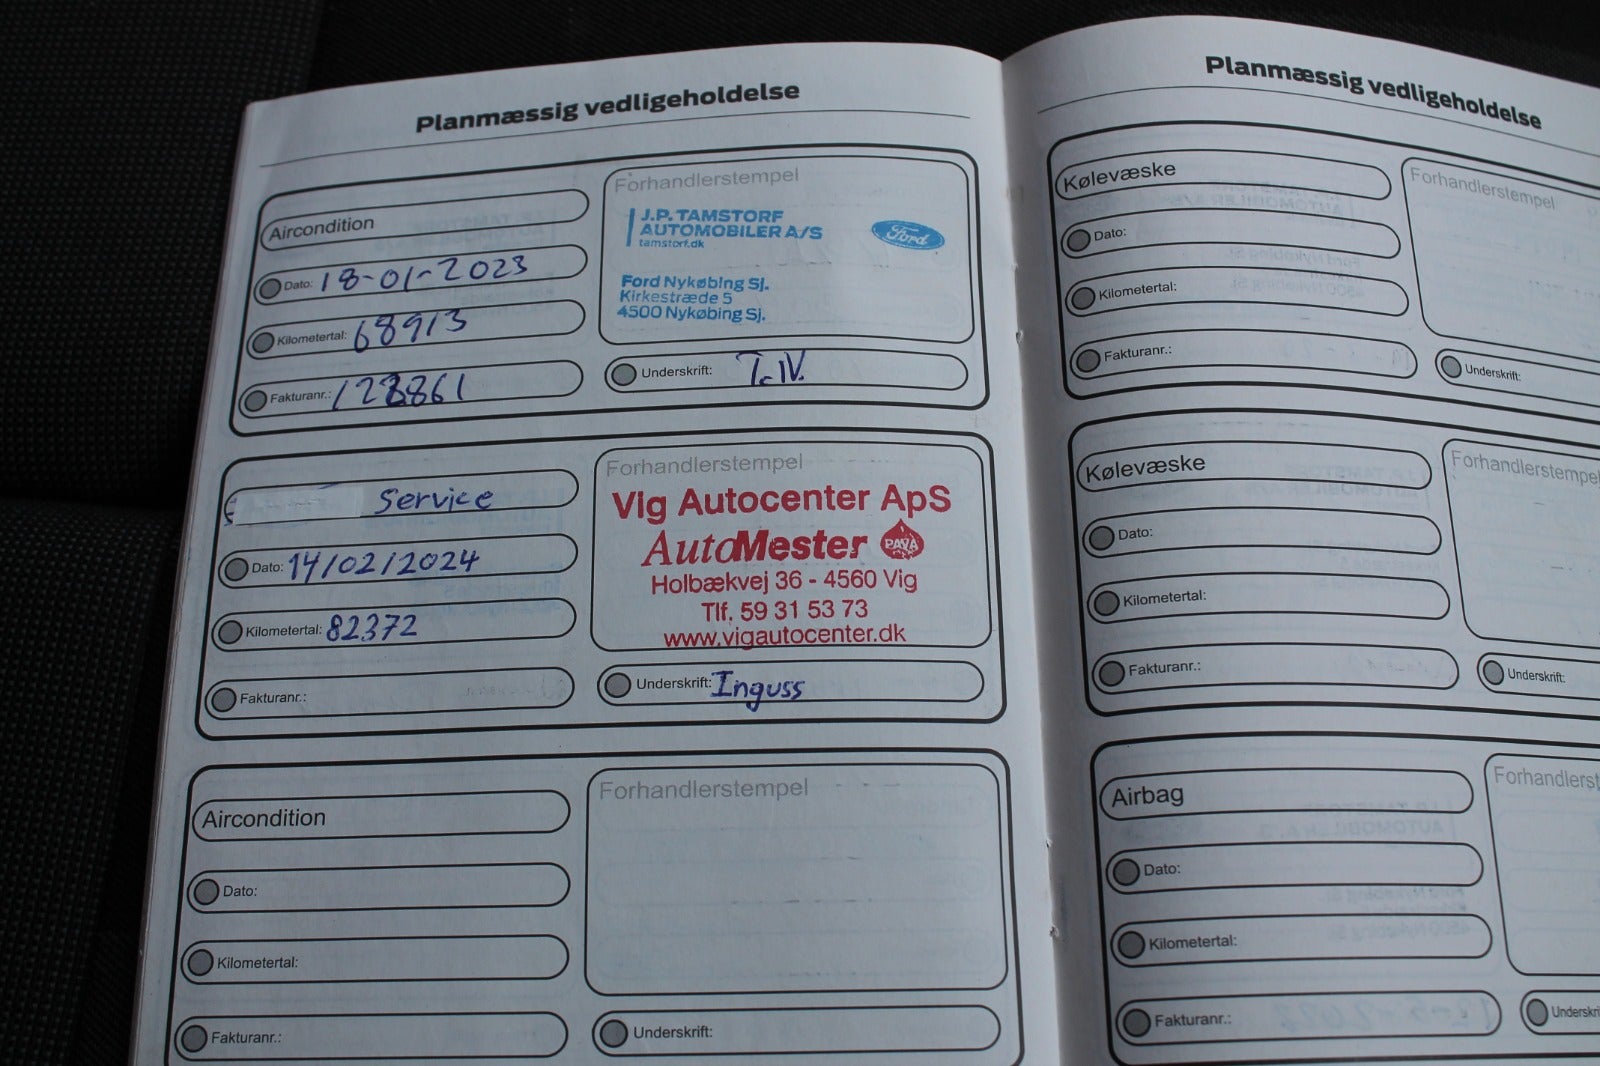 Planmæssig vedligeholdelse
Aircondition
Dato: 18-01-2023
Kilometertal: 68913
Fakturanr.: 128861
Forhandlerstempel
J.P. TAMSTORF
AUTOMOBILER A/S
tamstorf.dk
Ford
Ford Nykøbing Sj.
Kirkestræde 5
4500 Nykøbing Sj.
Underskrift: T.IV.
Service
Dato: 14/02/2024
Kilometertal: 82372
Fakturanr.:
Forhandlerstempel
Vig Autocenter ApS
AutoMester PAVA
Holbækvej 36 - 4560 Vig
Tlf. 59 31 53 73
www.vigautocenter.dk
Underskrift: Inguss
Aircondition
Dato:
Kilometertal:
Fakturanr.:
Forhandlerstempel
Underskrift:
Planmæssig vedligeholdelse
Kølevæske
Dato:
Kilometertal:
Fakturanr.:
Forhandlerstempel
Underskrift:
Kølevæske
Dato:
Kilometertal:
Fakturanr.:
Forhandlerstempel
Underskrift:
Airbag
Dato:
Kilometertal:
Fakturanr.:
Forhandlerst
Underskri